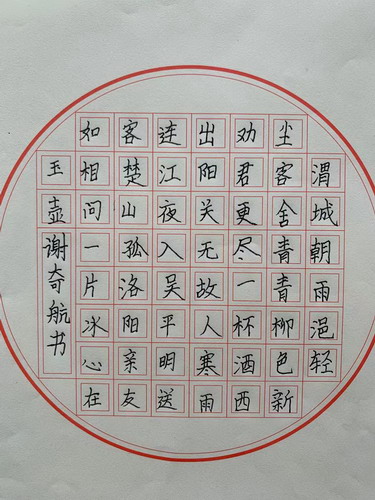 渭城朝雨浥轻
尘客舍青青柳色新
劝君更尽一杯酒西
出阳关无故人寒雨
连江夜入吴平明送
客楚山孤洛阳亲友
如相问一片冰心在
玉壶谢奇航书